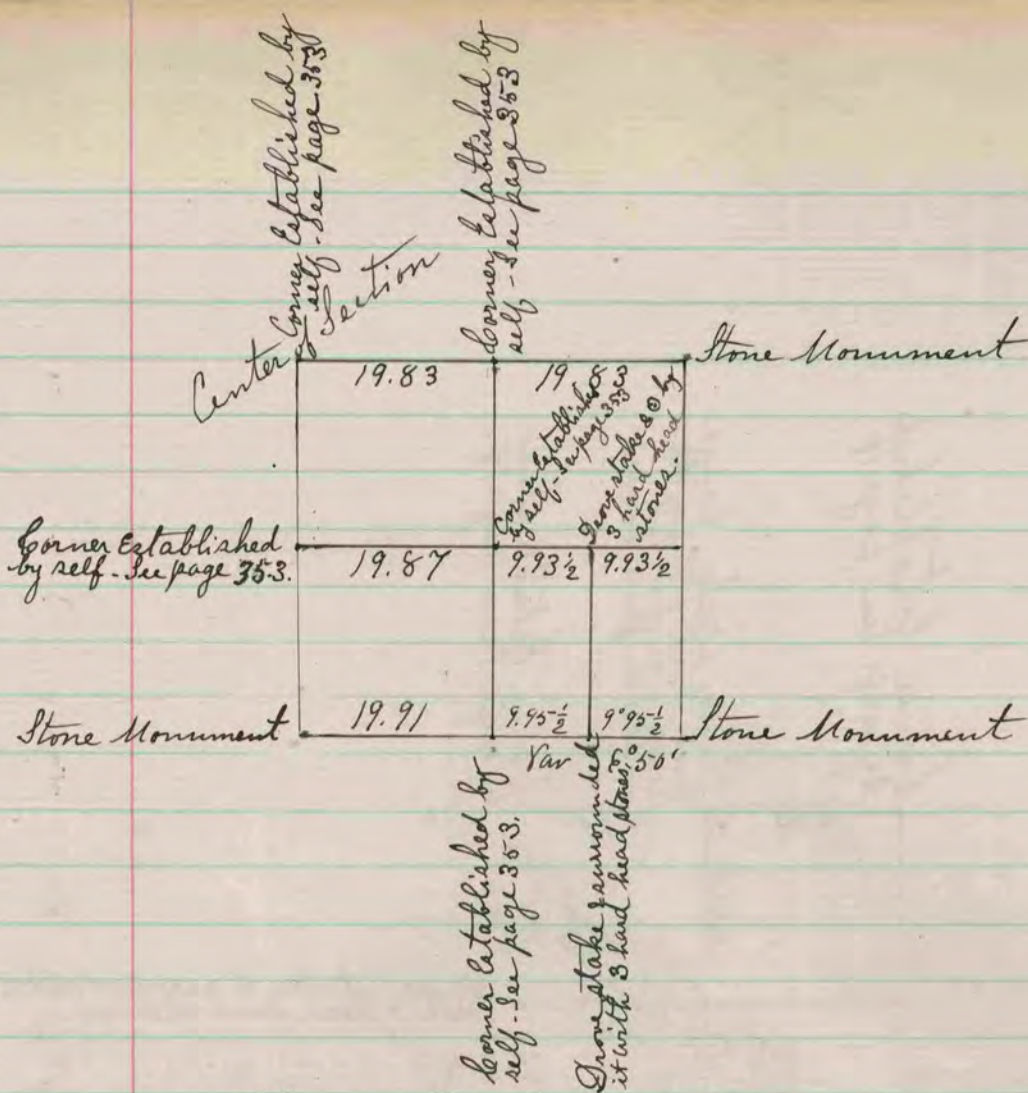 Corner Established by
self - See page 353
Corner Established by
self - See page 353
Center of Section
Stone Monument
19.83
19
Corner Established
by self - See page 353
Drove stake & ⊙ by
3 hard head
stones.
Corner Established
by self - See page 353.
19.87
9.93½
9.93½
Stone Monument
19.91
9.95½
9.95½
Stone Monument
Var
50'
Corner Established by
self - See page 353.
Drove stake & surrounded
it with 3 hard head stones.